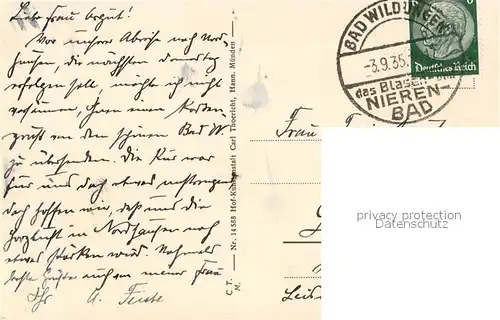 Liebe Frau
Vor unserer Abreise nach Nord-
hausen, die nächsten Donnerstag
erfolgen soll, möchte ich nicht
versäumen, Ihnen einen Karten-
gruß von dem schönen Bad W.
zu übersenden. Die Kur war
für uns doch etwas anstrengend
doch hoffen wir, daß uns die
Herzluft in Nordhausen noch
etwas stärken wird. Nochmals
beste Grüße auch von meiner Frau
Ihr A. Feiste
C. T. M.
Nr. 14588 Hof-Kunstanstalt Carl Thoericht, Hann. Münden
BAD WILDUNGEN
-3.9.35.
das Blasen- und
NIEREN-
BAD
6
Deutsches Reich
Frau
privacy protection
Datenschutz